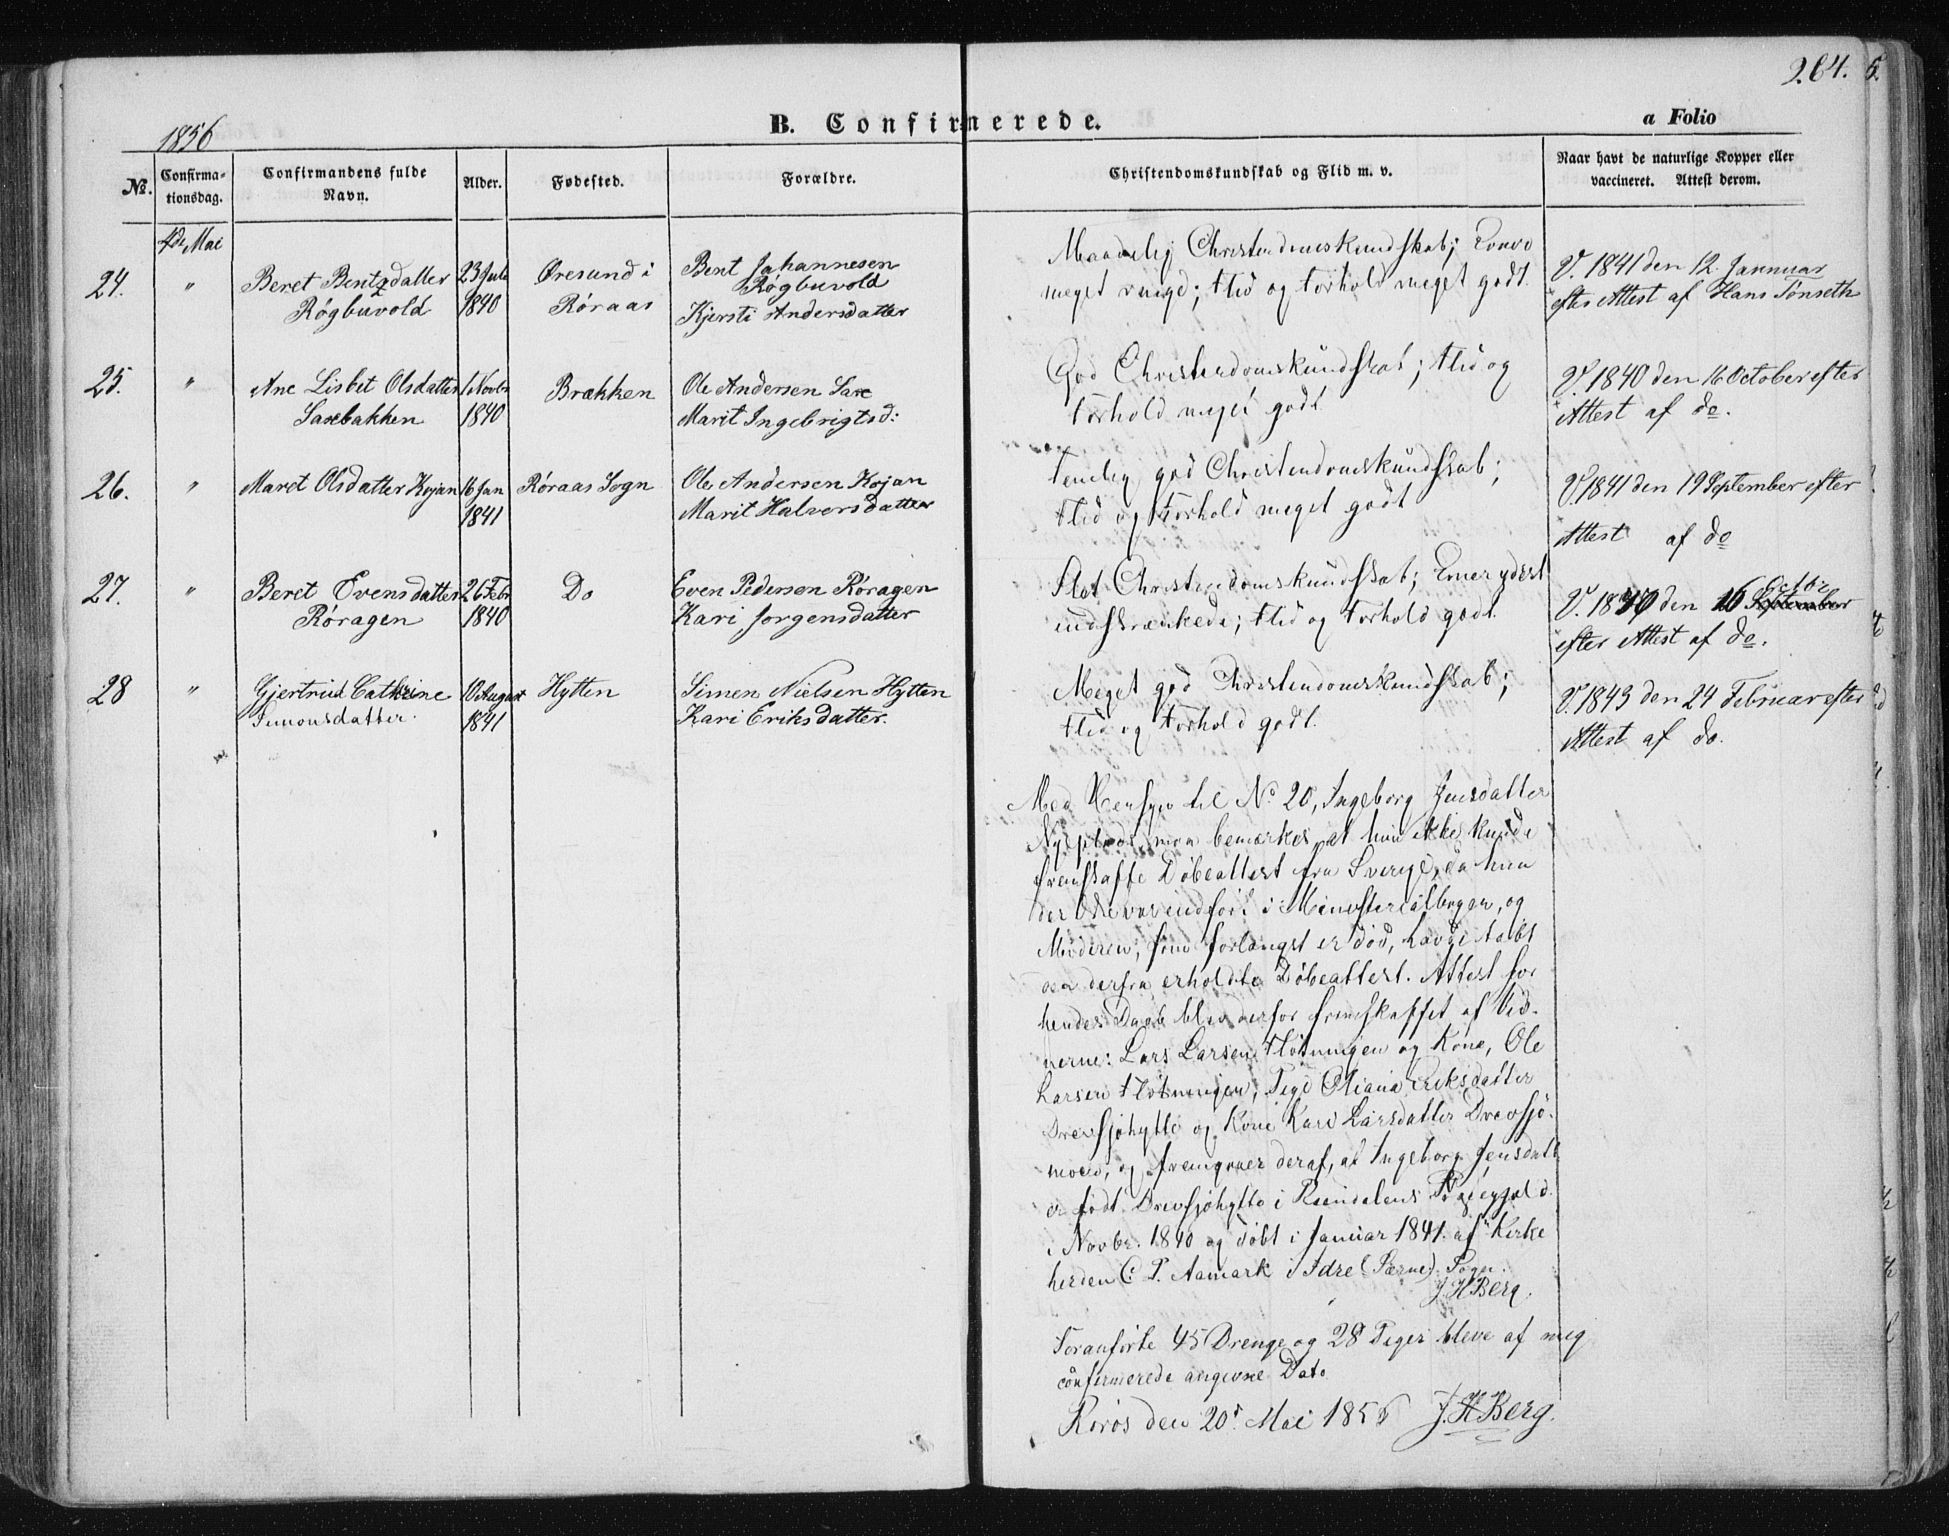 264.
1856
B. Confirmerede.
a Folio
No. Confirmationsdag. Confirmandens fulde Navn. Alder. Fødested. Forældre. Christendomskundskab og Flid m. v. Naar havt de naturlige Kopper eller vaccineret. Attest derom.
4de Mai
24. " Beret Bentsdatter 23 Juli Øresund i Bent Johannesen Maadelig Christendomskundskab; Evner V. 1841 den 12. Januar
Røgbuvold 1840 Røraas Røgbuvold meget ringe; Flid og Forhold meget godt. efter Attest af Hans Tønseth
Kjersti Andersdatter
25. " Ane Lisbet Olsdatter 1 Novbr Brækken Ole Andersen Saxe God Christendomskundskab; Flid og V. 1840 den 16 October efter
Saxebakken 1840 Marit Ingebrigtsd: Forhold meget godt Attest af do.
26. " Maret Olsdatter Kojan 16 Jan Røraas Sogn Ole Andersen Kojan Temelig god Christendomskundskab; V. 1841 den 19 September efter
1841 Marit Halvorsdatter Flid og Forhold meget godt Attest af do
27. " Beret Evensdatter 26 Febr Do Even Pedersen Røragen Slet Christendomskundskab; Evner yderst V. 18 den 16 September Octobr
Røragen 1840 Kari Jorgensdatter indskrænkede; Flid og Forhold godt. efter Attest af do.
28 " Gjertrud Cathrine 10 August Hytten Simen Nielsen Hytten Meget god Christendomskundskab; V. 1843 den 24 Februar efter
Simonsdatter. 1841 Kari Eriksdatter. Flid og Forhold godt. Attest af do.
Med Hensyn til No 20, Ingeborg Jensdatter
maa bemærkes, at hun ikke kunde
fremskaffe Døbeattest fra Sverige, da hun
der ikke var indført i Ministerialbogen, og
Moderen, som forlængst er død, havde tabt
den derfra erholdte Døbeattest. Attest for
hendes Daab blev derfor fremskaffet af Vid-
nerne: Lars Larsen Fløtningen og Kone, Ole
Larsen Fløtningen, Pige Oliana Eriksdatter
Drevsjøhytte og Kone Kari Larsdatter Drevsjø-
moen, og fremgaaer deraf, at Ingeborg Jensdatt
er født Drevsjøhytte i Rendalens Præstegjeld
i Novbr. 1840 og døbt i Januar 1841 af Kirke
herden C. P. Aamark i Idre (Særne) Sogn.
J. H Berg.
Foranførte 45 Drenge og 28 Piger bleve af mig
confirmerede angivne Dato
Røros den 20d Mai 1856 J. H Berg.